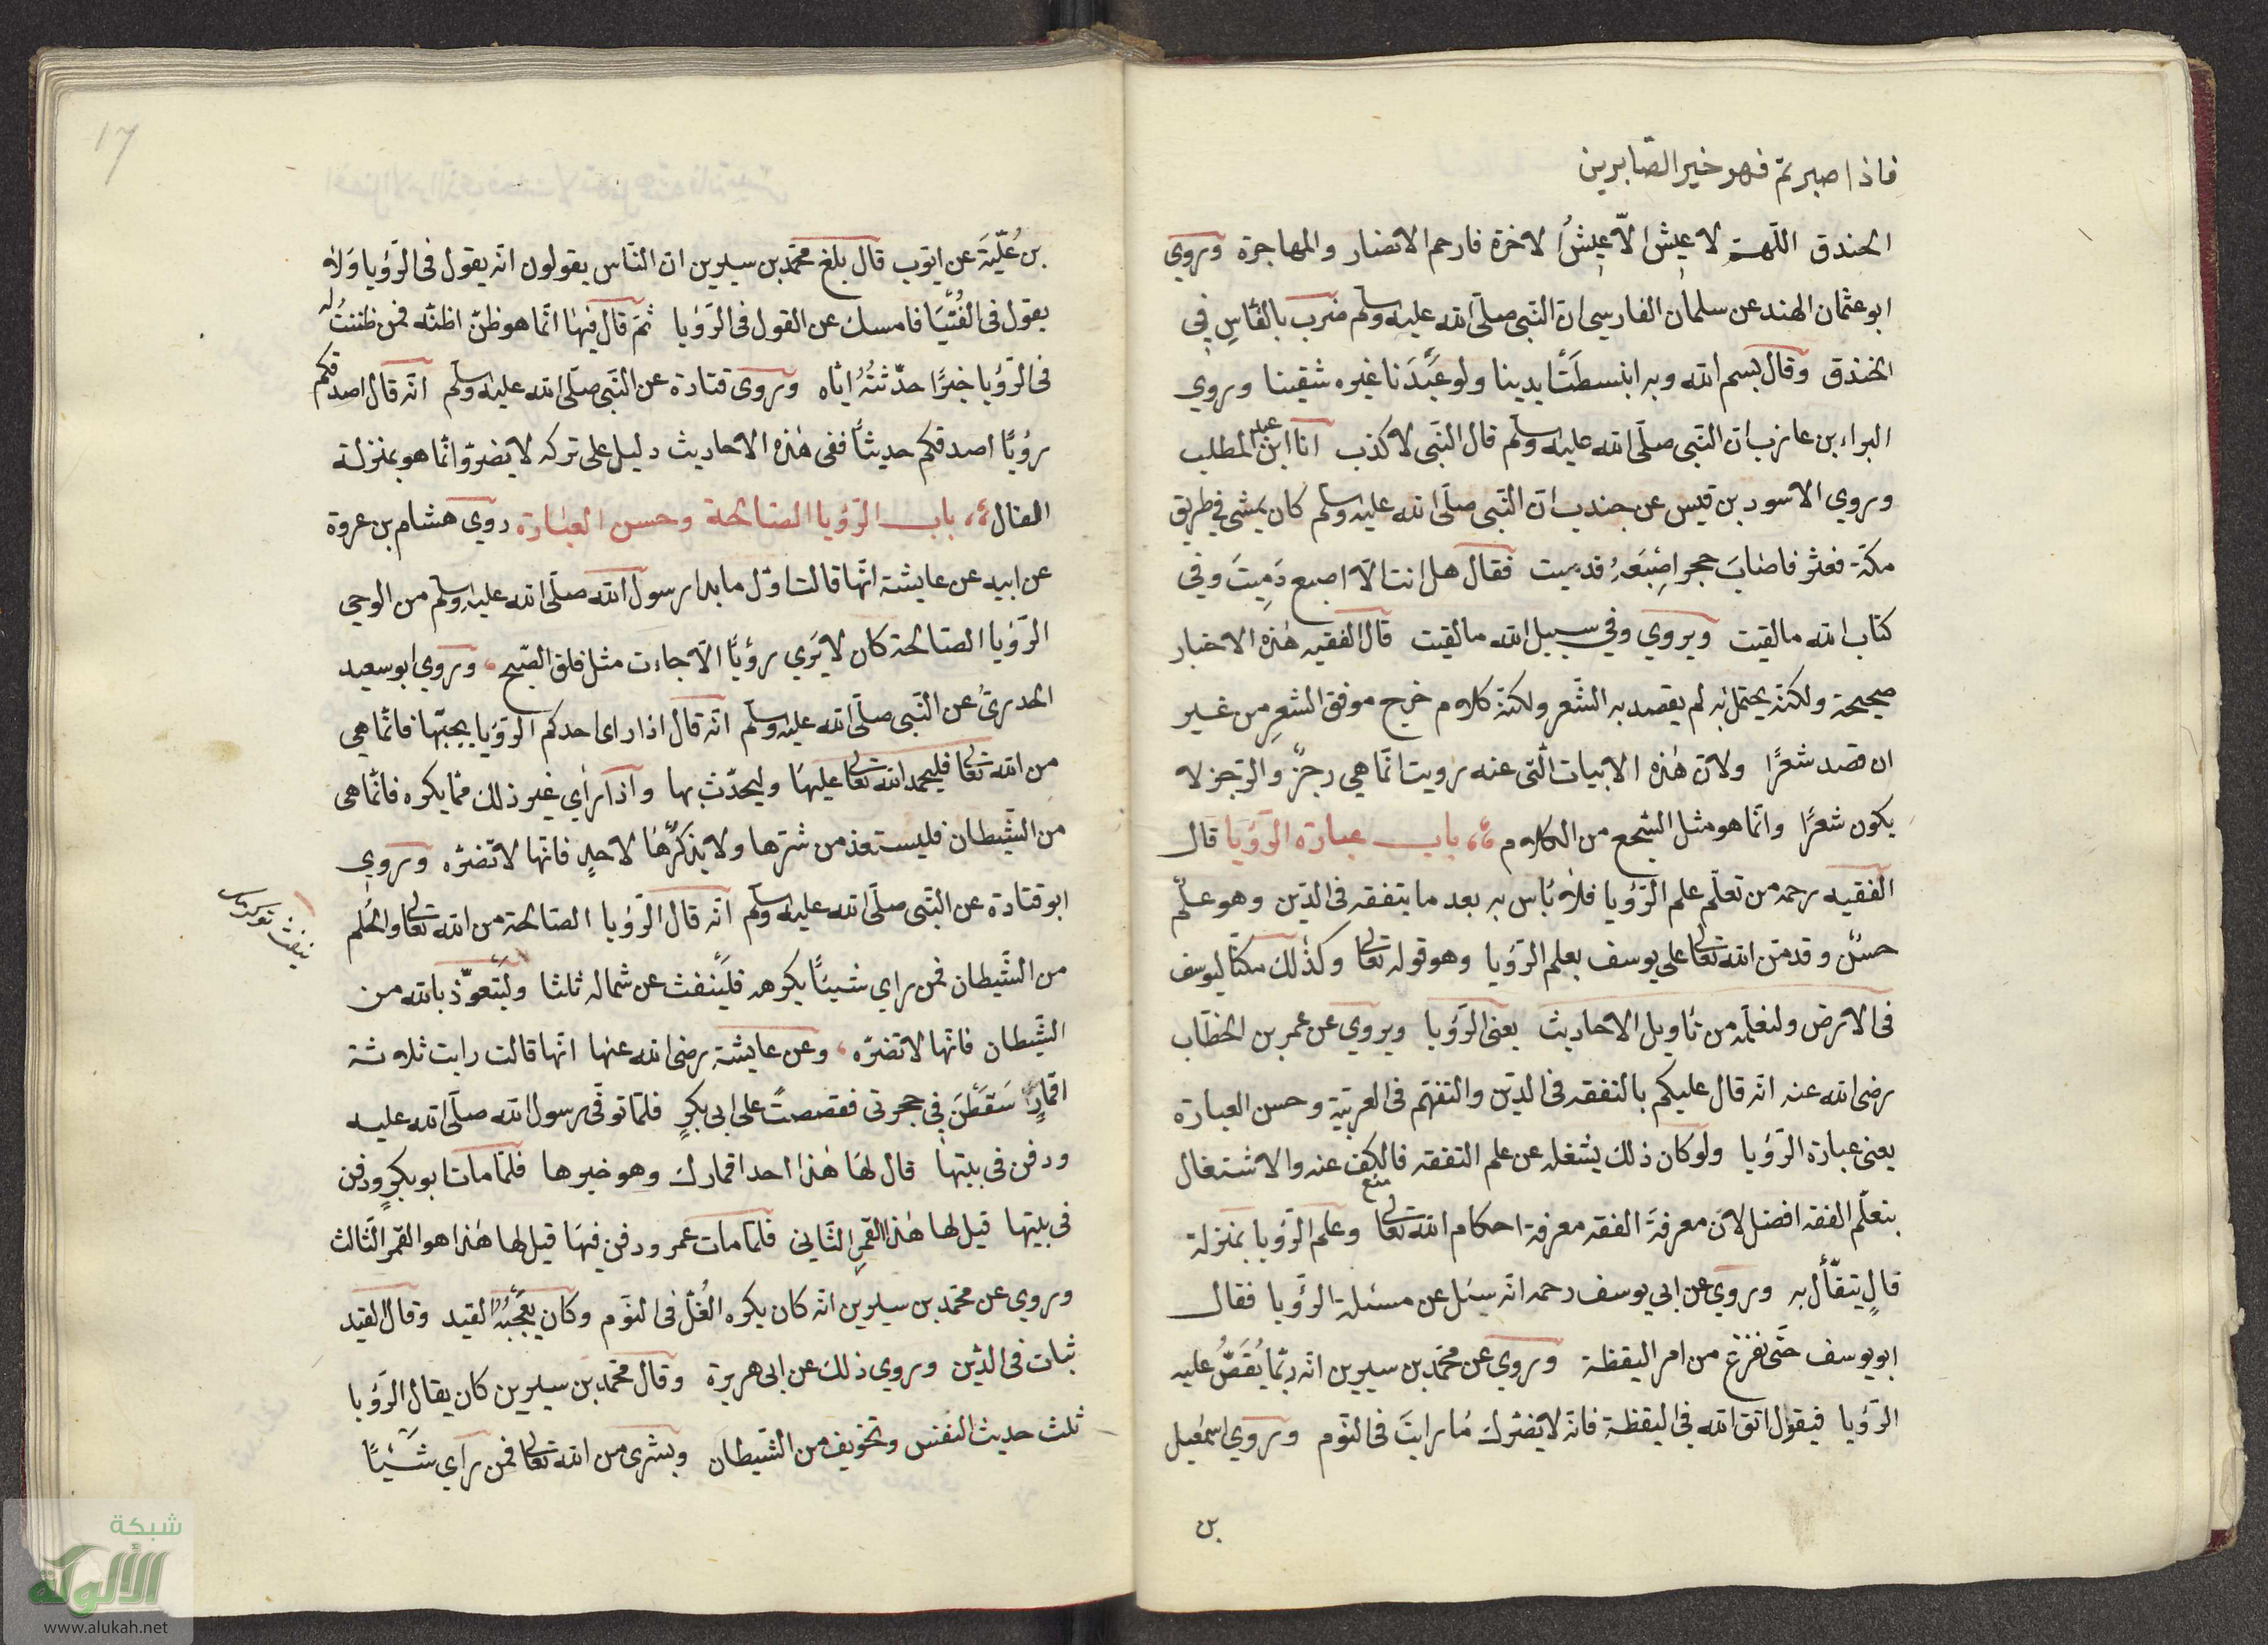 فاذا صبرتم فهو خير الصّابرين
الخندق اللّهمّ لا عيش الّا عيشُ الاخرة فارحم الانصار والمهاجرة وروي
ابو عثمان الهند عن سلمان الفارسي انّ النّبى صلّى الله عليه وسلم ضرب بالفاسِ في
الخندق وقال بسم الله وبه ابنسطَتْ يدينا ولو عَبَدَنا غيره شقينا وروي
البراء بن عازب انّ النّبى صلّى الله عليه وسلم قال النّبى لا كذب انا ابن عبد المطلب
وروي الاسود بن قيس عن جندب انّ النّبى صلّى الله عليه وسلم كان يمشى في طريق
مكّة فعثر فاصابَ حجر اصْبَعَهُ فدميت فقال هل انت الّا اصبع دَمِيتَ وفي
كتاب الله ما لقيت ويروي وفي سبيل الله ما لقيت قال الفقيه هذه الاخبار
صحيحة ولكنّه يحتمل انه لم يقصد به الشّعر ولكنّه كلام خرج موفق الشعرِ من غير
ان قصد شعرًا ولانّ هذه الابيات الّتى عنه رويت انّما هي رجزٌ والرّجز لا
يكون شعرًا وانّما هو مثل السّجع من الكلام باب عبارة الرّؤيا قال
الفقيه رحمه من تعلّم علم الرّؤيا فلا بأس به بعد ما يتفقه فى الدّين وهو علم
حسنٌ وقد منّ الله تعالى على يوسف بعلم الرّؤيا وهو قوله تعالى وكذلك مكنّا ليوسف
فى الارض ولنعلّمه من تأويل الاحاديث يعنى الرّؤيا ويروي عن عمر بن الخطّاب
رضى الله عنه انّه قال عليكم بالتفقه فى الدّين والتفهّم فى العربيّة وحسن العبارة
يعنى عبارة الرّؤيا ولو كان ذلك يشغله عن علم التفقه فالكف عنه والاشتغال
منع
بتعلّم الفقه افضل لانّ معرفةَ الفقه معرفة احكام الله تعالى وعلم الرّؤيا بمنزلة
فالٍ يتفّأل به وروي عن ابي يوسف رحمه انّه سئل عن مسئلة الرّؤيا فقال
ابو يوسف حتّى نفرغ من امر اليقظة وروي عن محمّد بن سيرين انّه ربّما يُقَصُّ عليه
الرّؤيا فيقول اتق الله في اليقظة فانّه لا يضرّك مٰا رايتَ فى النّوم وروي اسمعيل
بن
17
بن عُلَيّةَ عن ايّوب قال بلغ محمّد بن سيرين ان النّاس يقولون انّه يقول فى الرّؤيا ولا
يقول فى الفُتْيَا فامسك عن القول فى الرّؤيا ثمّ قال فيها انّما هو ظنّ اظنّه فمن ظننتُ له
فى الرّؤيا خيرًا حدّثتُهُ ايّاه وروى قتادة عن النّبى صلّى الله عليه وسلم انّه قال اصدقكم
رؤيًا اصدقكم حديثًا ففى هذه الاحاديث دليل على تركه لا يضرّ وانّما هو بمنزلة
الفال باب الرّؤيا الصّالحة وحسن العبارة روي هشام بن عروة
عن ابيه عن عايشة انّها قالت اوّل ما بدا رسول الله صلّى الله عليه وسلم من الوحى
الرّؤيا الصّالحة كان لا يَرَي رؤيًا الّا جاءت مثل فلق الصّبح وروي ابو سعيد
الخدريّ عن النّبى صلّى الله عليه وسلم انّه قال اذا راى احدكم الرّؤيا يحبّها فانّما هي
من الله تعالى فليحمد الله تعالى عليها وليحدّث بها واذا راي غير ذلك ممّا يكره فانّما هى
من الشّيطان فليستعذ من شرّها ولا يذكرْهٰا لاحدٍ فانّها لا تضرّه وروي
ابو قتادة عن النّبى صلّى الله عليه وسلم انّه قال الرّؤيا الصّالحة من الله تعالى والحُلم
من الشّيطان فمن راي شيئًا يكرهه فليَنفث عن شماله ثلثا وليَتعوّذ بالله من
الشّيطان فانّها لا تضرّه وعن عايشة رضى الله عنها انّها قالت رايت ثلاثة
اقمارٍ سَقَطْنَ فى حجرتى فقصصتُ على ابى بكرٍ فلمّا توفّى رسول الله صلّى الله عليه
ودفن فى بيتهٰا قال لهَا هٰذا احد اقمارك وهو خيرها فلمّا مات ابو بكرٍ ودفن
فى بيتها قيل لها هٰذا القمر الثّانى فلمّا مات عمر ودفن فيهَا قيل لها هٰذا هو القمر الثّالث
وروي عن محمّد بن سيرين انّه كان يكره الغُلّ فى النّوم وكان يعْجِبُهُ القيد وقال القيد
ثبات فى الدّين وروي ذلك عن ابى هريرة وقال محمّد بن سيرين كان يقال الرّؤيا
ثلث حديث النّفس وتخويف من الشّيطان وبشرى من الله تعالى فمن راي شَيْئًا
شبكة
الألوكة
www.alukah.net